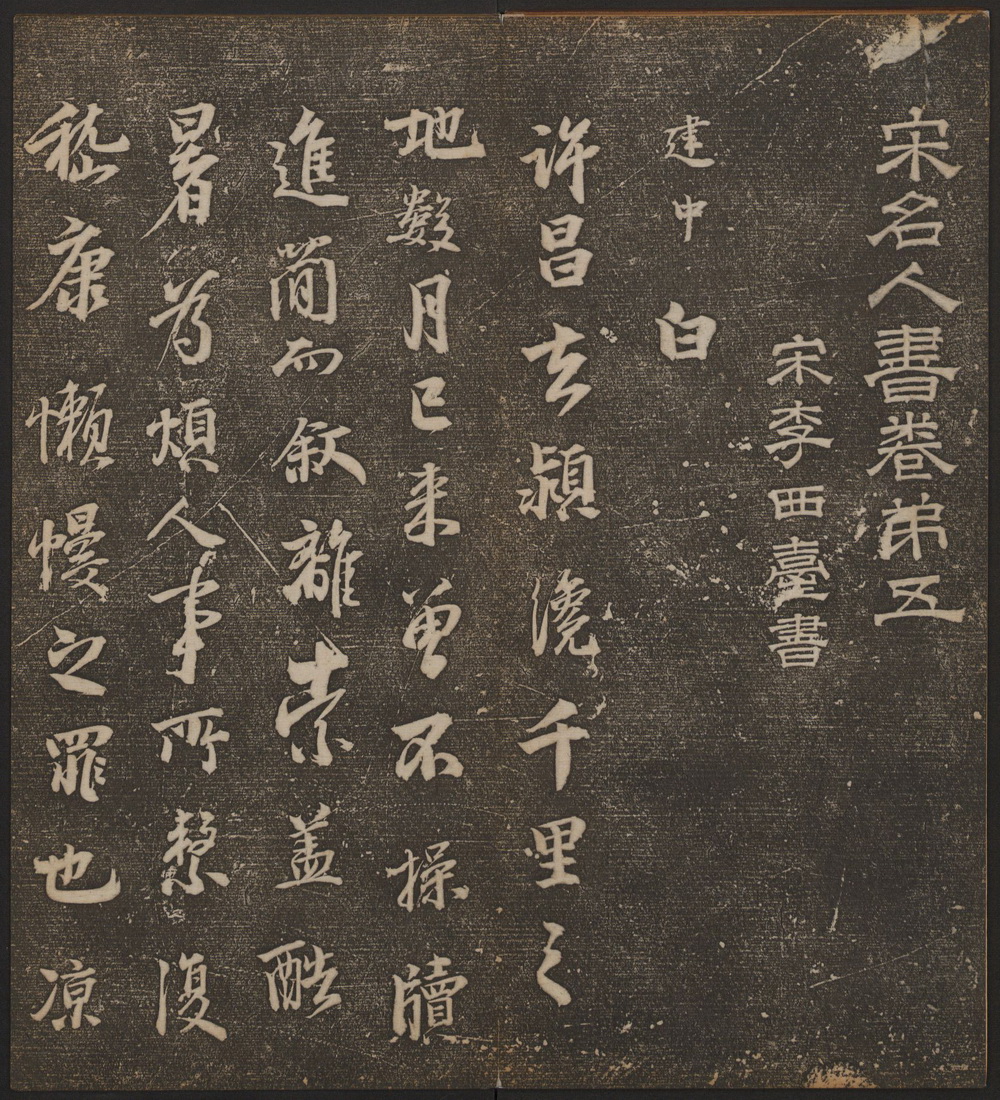 宋名人書卷弟五
宋李西臺書
建中 白
許昌去千里之
地數月已来曾不操牘
進簡而叙離索蓋酷
暑為煩人事所繫復
嵇康懶慢之罪也凉